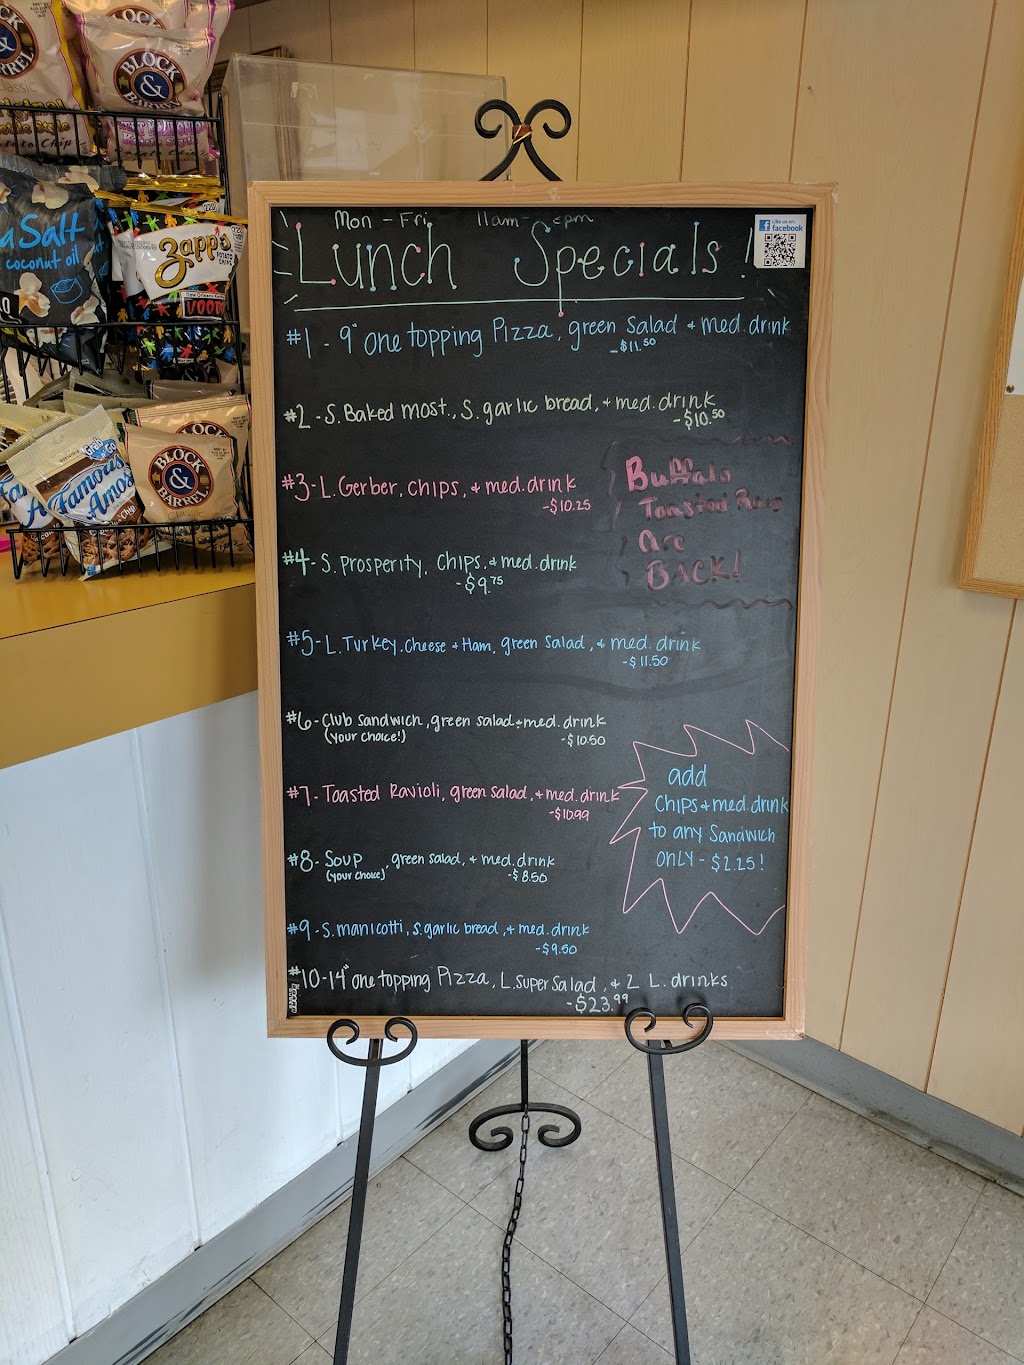 Mon - Fri 11am -
Lunch Specials!
Like us on:
facebook
#1 - 9" one topping Pizza, green Salad + med. drink
- $11.50
#2 - S. Baked most., S. garlic bread, + med. drink
- $10.50
#3 - L. Gerber, chips, + med. drink
- $10.25
Buffalo
Toasted Ravs
are
BACK!
#4 - S. Prosperity, chips, + med. drink
- $9.75
#5 - L. Turkey, cheese + Ham, green Salad, + med. drink
- $11.50
#6 - Club Sandwich, green salad + med. drink
(your choice!)
- $10.50
#7 - Toasted Ravioli, green salad, + med. drink
- $10.99
add
chips + med. drink
to any Sandwich
ONLY - $2.25!
#8 - Soup, green salad, + med. drink
(your choice)
- $8.50
#9 - S. manicotti, s. garlic bread, + med. drink
- $9.50
#10 - 14" one topping Pizza, L. Super Salad, + 2 L. drinks
- $23.99
BLOCK
&
BARREL
Sea Salt
coconut oil
Zapp's
POTATO CHIPS
New Orleans Kettle
VOODOO
Grab Go
Famous
Amos
BLOCK
&
BARREL